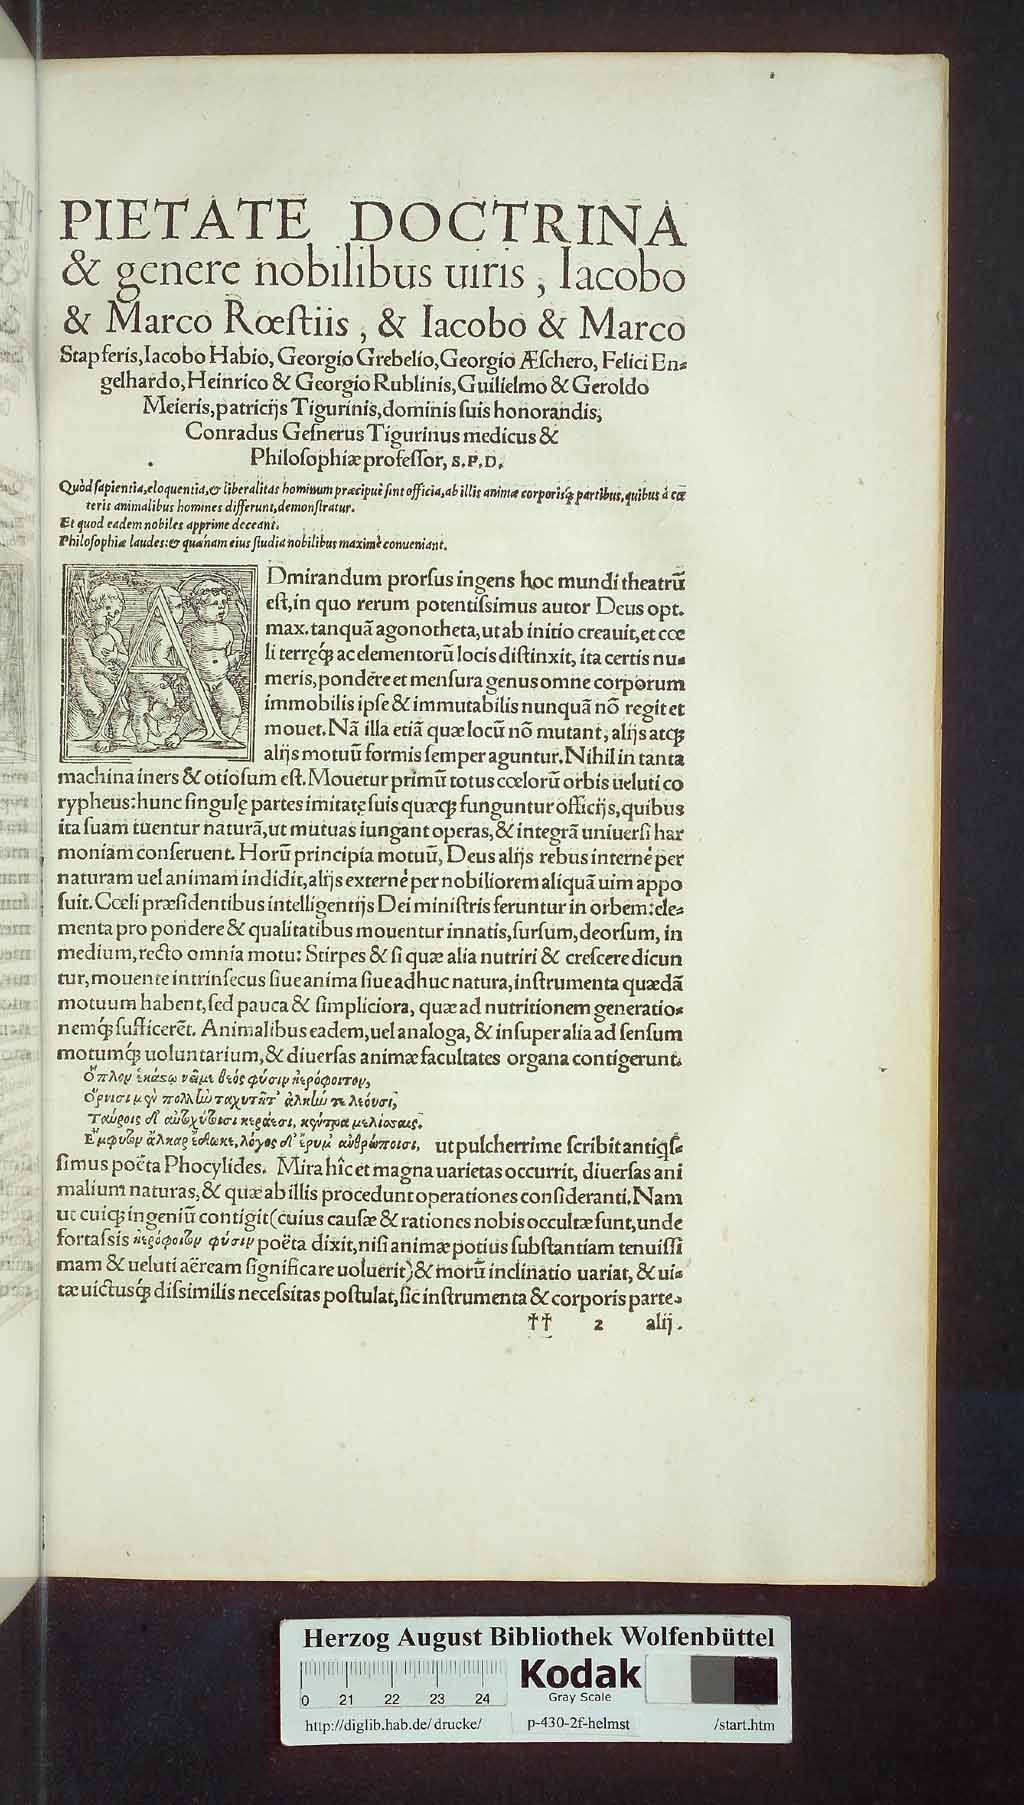 PIETATE DOCTRINA
& genere nobilibus uiris, Iacobo
& Marco Rœſtiis, & Iacobo & Marco
Stapferis, Iacobo Habio, Georgio Grebelio, Georgio Æſchero, Felici En-
gelhardo, Heinrico & Georgio Rublinis, Guilielmo & Geroldo
Meieris, patricijs Tigurinis, dominis ſuis honorandis,
Conradus Geſnerus Tigurinus medicus &
Philoſophiæ profeſſor, S.P.D.
Quòd ſapientia, eloquentia, & liberalitas hominum præcipuè ſint officia, ab illis animæ corporisq́; partibus, quibus à cæ
teris animalibus homines differunt, demonſtratur.
Et quod eadem nobiles apprime deceant.
Philoſophiæ laudes: & quǽnam eius ſtudia nobilibus maximè conueniant.
ADmirandum prorſus ingens hoc mundi theatrũ
eſt, in quo rerum potentiſsimus autor Deus opt.
max. tanquã agonotheta, ut ab initio creauit, et cœ
li terręq́; ac elementorũ locis diſtinxit, ita certis nu-
meris, pondere et menſura genus omne corporum
immobilis ipſe & immutabilis nunquã nõ regit et
mouet. Nã illa etiã quæ locũ nõ mutant, alijs atq;
alijs motuũ formis ſemper aguntur. Nihil in tanta
machina iners & otioſum eſt. Mouetur primũ totus cœlorũ orbis ueluti co
rypheus: hunc ſingulę partes imitatę ſuis quæq; funguntur officijs, quibus
ita ſuam tuentur naturã, ut mutuas iungant operas, & integrã uniuerſi har
moniam conſeruent. Horũ principia motuũ, Deus alijs rebus internè per
naturam uel animam indidit, alijs externè per nobiliorem aliquã uim appo
ſuit. Cœli præſidentibus intelligentijs Dei miniſtris feruntur in orbem: ele-
menta pro pondere & qualitatibus mouentur innatis, ſurſum, deorſum, in
medium, recto omnia motu: Stirpes & ſi quæ alia nutriri & creſcere dicun
tur, mouente intrinſecus ſiue anima ſiue adhuc natura, inſtrumenta quædã
motuum habent, ſed pauca & ſimpliciora, quæ ad nutritionem generatio-
nemq́; ſufficerẽt. Animalibus eadem, uel analoga, & inſuper alia ad ſenſum
motumq́; uoluntarium, & diuerſas animæ facultates organa contigerunt.
Ὅπλον ἑκάςῳ νεῖμε θεὸς φύσιν ἠερόφοιτον,
Ὄρνισι μὲν πολλὼ ταχυτῆτ᾽ ἀλκὼ τε λέουσι,
Ταύροις δ᾽ αὐτοχύτοισι κεράεσι, κέντρα μελίσσαις.
Ἔμφυτον ἄλκαρ ἔδωκε, λόγος δ᾽ ἔρυμ᾽ ἀνθρώποισι, ut pulcherrime ſcribit antiqiſ-
ſimus poëta Phocylides. Mira hîc et magna uarietas occurrit, diuerſas ani
malium naturas, & quæ ab illis procedunt operationes conſideranti. Nam
ut cuiq; ingeniũ contigit (cuius cauſæ & rationes nobis occultæ ſunt, unde
fortaſsis ἠερόφοιτον φύσιν poëta dixit, niſi animæ potius ſubſtantiam tenuiſſi
mam & ueluti aëream ſignificare uoluerit) & morũ inclinatio uariat, & ui-
tæ uictusq́; diſsimilis neceſsitas poſtulat, ſic inſtrumenta & corporis parte-
†† 2 alij.
Herzog August Bibliothek Wolfenbüttel
Kodak
Gray Scale
0 21 22 23 24
http://diglib.hab.de/drucke/ p-430-2f-helmst /start.htm